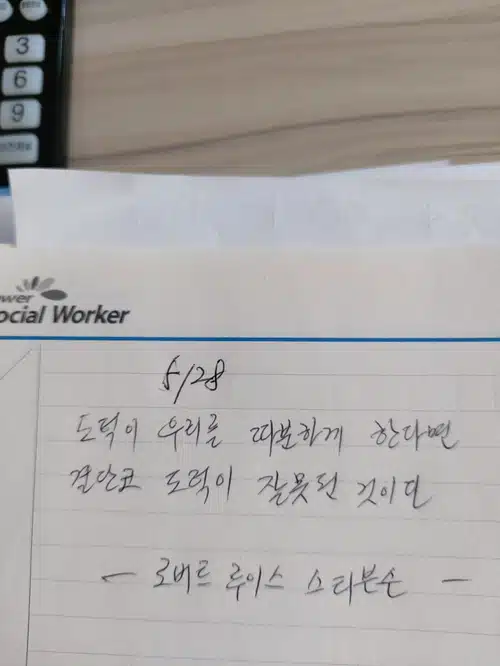 3
6
9
ower
ocial Worker
5/28
도덕이 우리를 따분하게 한다면
결단코 도덕이 잘못된 것이다
- 로버트 루이스 스티븐손 -